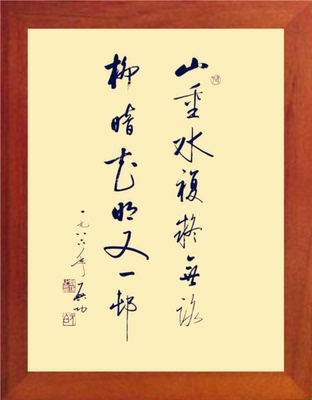 山重水複疑無路
柳暗花明又一邨
一九八六年 启功